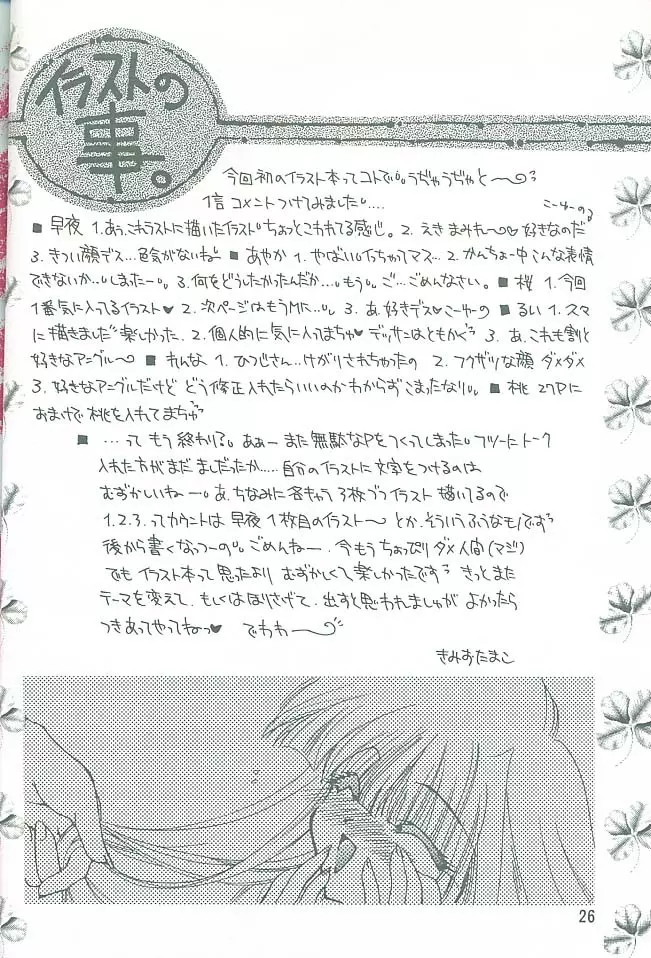 イラストの
事。
今回初のイラスト本ってコトで。うぢゃうぢゃと〜
1言コメントつけてみました。....
■早夜 1. あぅ、これラストに描いたイラスト。ちょっとこわれてる感じ。 2. えき まみれ〜♡ 好きなのだ
3. きつい顔デス...色会がないねー ■あやか 1. やばい。イっちゃってマス... 2. かんちょー中 こんな表情
できないか...。しまったー。 3. 何をどうしたかったんだか...。もう。ご...ごめんなさい。 ■桜 1. 今回
1番気に入ってるイラスト♥ 2. 次ページはもうMに...。 3. あ、好きデス♥こーゆーの ■るい 1. スマ
に描きました 楽しかった。 2. 個人的に気に入ってまちゅ♥ デッサンはともかく 3. あ、これも割と
好きなアングル〜 ■れんな 1. ひつじさん...けがりされちゃったの 2. フクザツな顔 ダメダメ
3. 好きなアングルだけど どう修正入れたらいいのかわからずこまったなり。 ■桃 27Pに
おまけで桃を入れてまちゅ
■ ...って もう終わり?。あぁー また無駄なPをつくってしまった。フツーにトーク
入れた方がまだ ましだったか.....自分のイラストに文字をつけるのは
むずかしいねー。あ、ちなみに各キャラ3枚づつ イラスト 描いてるので
1.2.3.ってカウントは 早夜 1枚目のイラスト〜 とか、そういうふうなモノです
後から書くなっつーの。ごめんねー. 今もうちょっぴりダメ人間(マジ)
でも イラスト本って思ったより むずかしくて楽しかったです きっとまた
テーマを変えて、もしくはほりさげて、出すと思われましゅが よかったら
つきあってやってねっ♥ でわわ〜
きみおたまこ
26